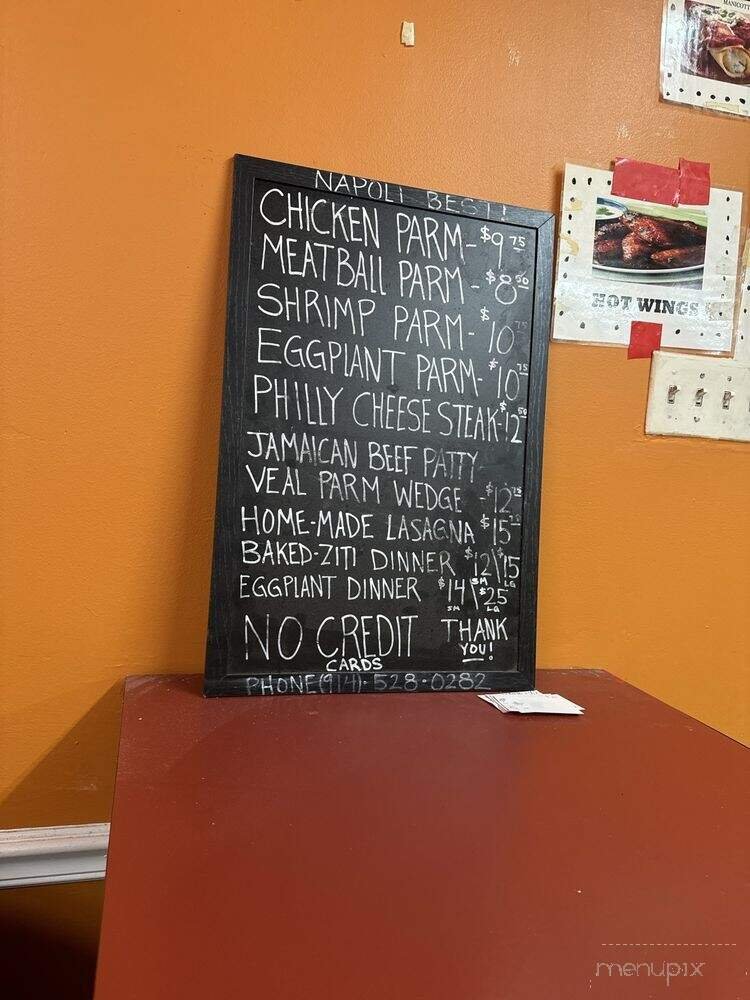 NAPOLI BEST!
CHICKEN PARM- $9 75
MEATBALL PARM - $8 50
SHRIMP PARM- $10 75
EGGPLANT PARM- $10 75
PHILLY CHEESE STEAK- $12 50
JAMAICAN BEEF PATTY
VEAL PARM WEDGE - $12 75
HOME-MADE LASAGNA $15
BAKED-ZITI DINNER $12 SM \ $15 LG
EGGPLANT DINNER $14 SM \ $25 LG
NO CREDIT CARDS
THANK YOU!
PHONE(914)-528-0282
MANICOTT
HOT WINGS
menupix